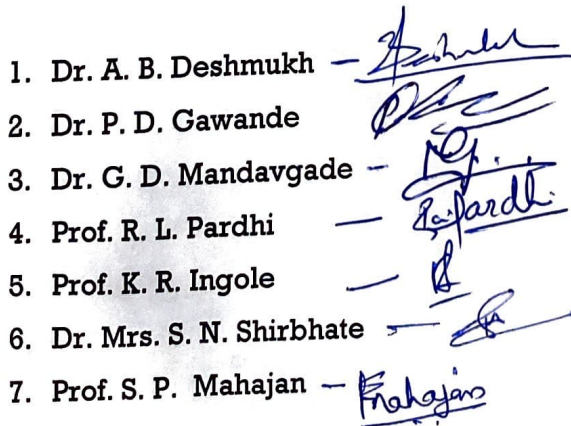 1. Dr. A. B. Deshmukh – Deshmukh
2. Dr. P. D. Gawande
3. Dr. G. D. Mandavgade –
4. Prof. R. L. Pardhi – Pardhi
5. Prof. K. R. Ingole –
6. Dr. Mrs. S. N. Shirbhate –
7. Prof. S. P. Mahajan – Mahajan